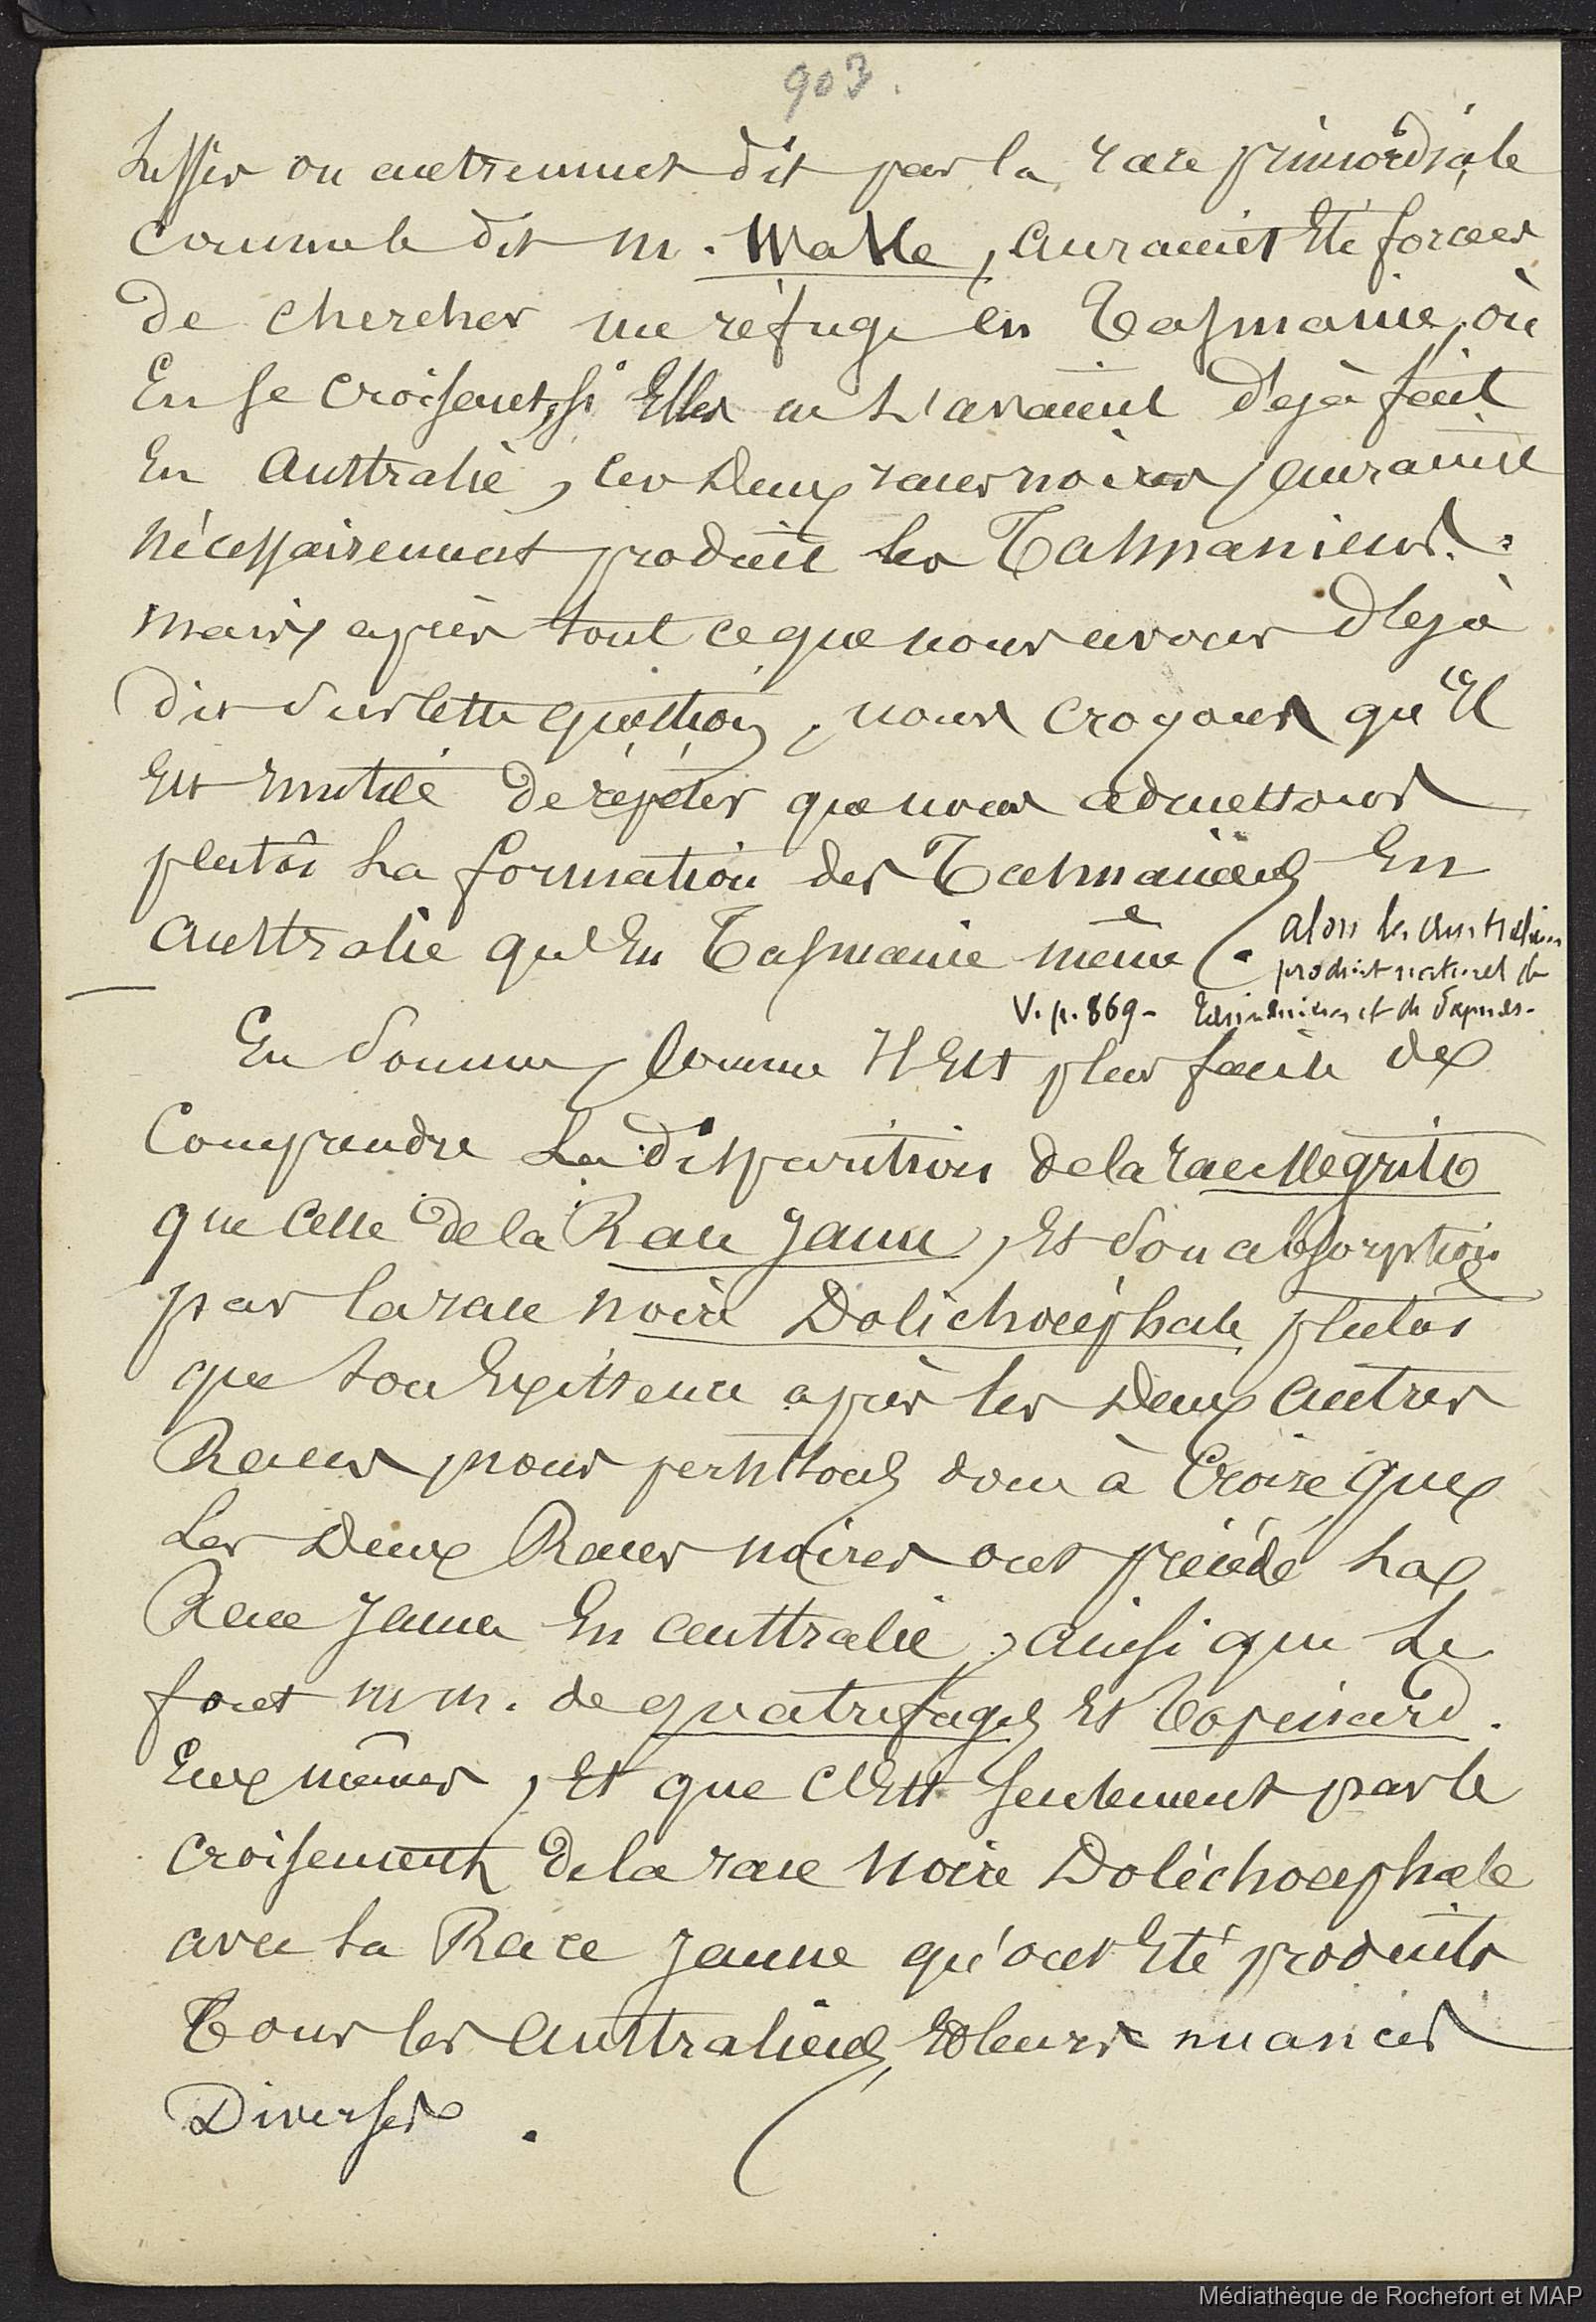 903.
lisses ou autrement dit par la race primordiale
comme le dit M. Wake, auraient été forcées
de chercher un refuge en Tasmanie, où
En se croisant, si Elles ne l'avaient dejà fait
En Australie, les Deux races noires, auraient
nécessairement produit les Tasmaniens.
mais après tout ce que nous avons dejà
dit sur cette question, nous croyons qu'Il
Est Inutile de répéter que nous admettons
plutôt la formation des Tasmaniens En
Australie qu'En Tasmanie même.
alors les Australiens
produit naturel de
V. p. 869 - Tasmaniens et de Papous.
En Somme, Comme Il Est plus facile de
Comprendre La disparition de la race Negrito
que Celle de la Race Jaune, Et Son absorption
par la race noire Dolichocéphale plutôt
que Son Existence après les Deux Autres
Races nous persistons donc à Croire que
Les Deux Races noires ont précédé la
Race Jaune En Australie, ainsi que le
font MM. de Quatrefages Et Topinard.
Eux mêmes, Et que C'Est seulement par le
croisement de la race noire Dolichocephale
avec la Race Jaune qu'ont Eté produits
Tous les Australiens, Et leurs nuances
Diverses.
Médiathèque de Rochefort et MAP